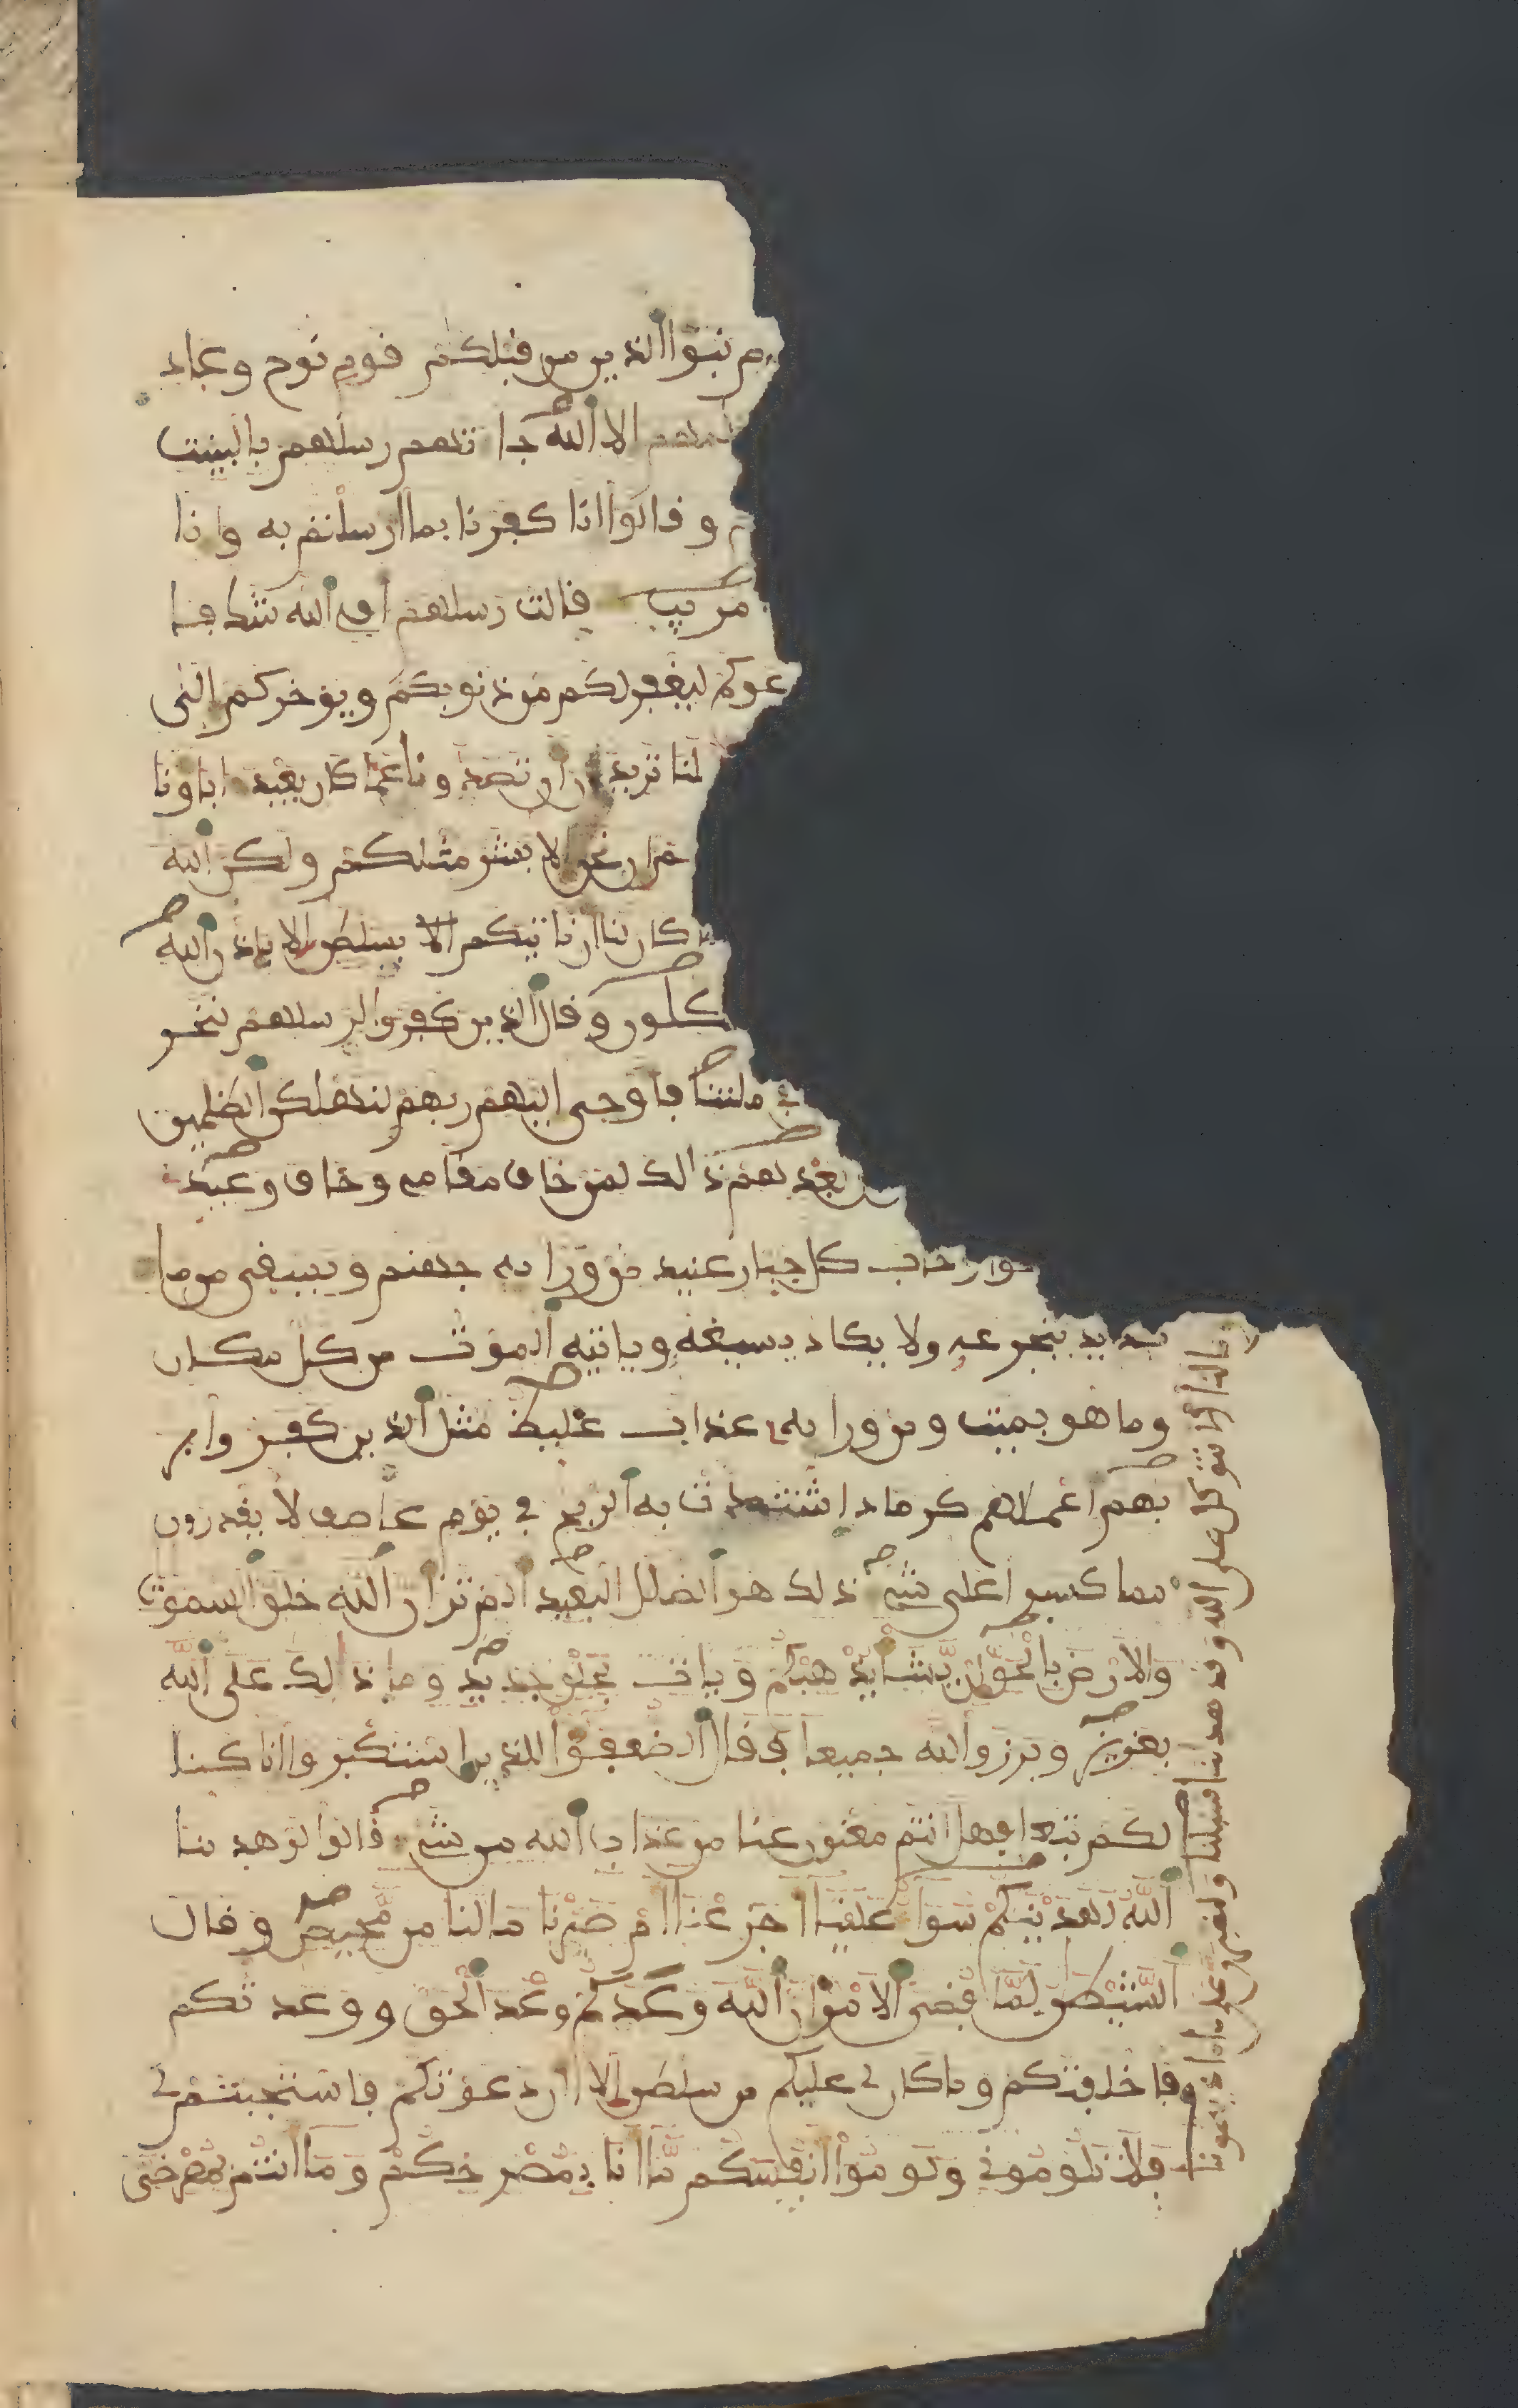 م نبؤا الذين من قبلكم قوم نوح وعاد
يعلمهم الا الله جا تهم رسلهم بالبينت
وقالوا انا كفرنا بما ارسلتم به وانا
مريب قالت رسلهم افي الله شك فا
عوكم ليغفر لكم من ذنوبكم ويؤخركم الى
لنا تريدون ان تصدونا عما كان يعبد اباونا
ان نحن الا بشر مثلكم ولكن الله
كان لنا ان ناتيكم الا بسلطن الا باذن الله
كلون وقال الذين كفروا لرسلهم لنخر
في ملتنا فاوحى اليهم ربهم لنهلكن الظلمين
بعدهم ذالك لمن خاف مقامي وخاف وعيد
وخاب كل جبار عنيد من ورايه جهنم ويسقى من ما
صديد يتجرعه ولا يكاد يسيغه وياتيه الموت من كل مكان
وما هو بميت ومن ورايه عذاب غليظ مثل الذين كفروا بر
بهم اعملهم كرماد اشتدت به الريح في يوم عاصف لا يقدرون
مما كسبوا على شي ذلك هو الضلل البعيد الم تر ان الله خلق السموت
والارض بالحق ان يشا يذهبكم ويات بخلق جديد وما ذالك على الله
بعزيز وبرزوا لله جميعا فقال الضعفؤا للذين استكبروا انا كنا
لكم تبعا فهل انتم مغنون عنا من عذاب الله من شي قالوا لو هدىنا
الله لهدينكم سوا علينا اجزعنا ام صبرنا ما لنا من محيص وقال
الشيطن لما قضى الامر ان الله وعدكم وعد الحق ووعدتكم
فاخلفتكم وما كان لي عليكم من سلطن الا ان دعوتكم فاستجبتم لي
فلا تلوموني ولوموا انفسكم ما انا بمصرخكم وما انتم بمصرخي
ما لنا الا نتوكل على الله وقد هدىنا سبلنا ولنصبرن على ما اذيتمونا